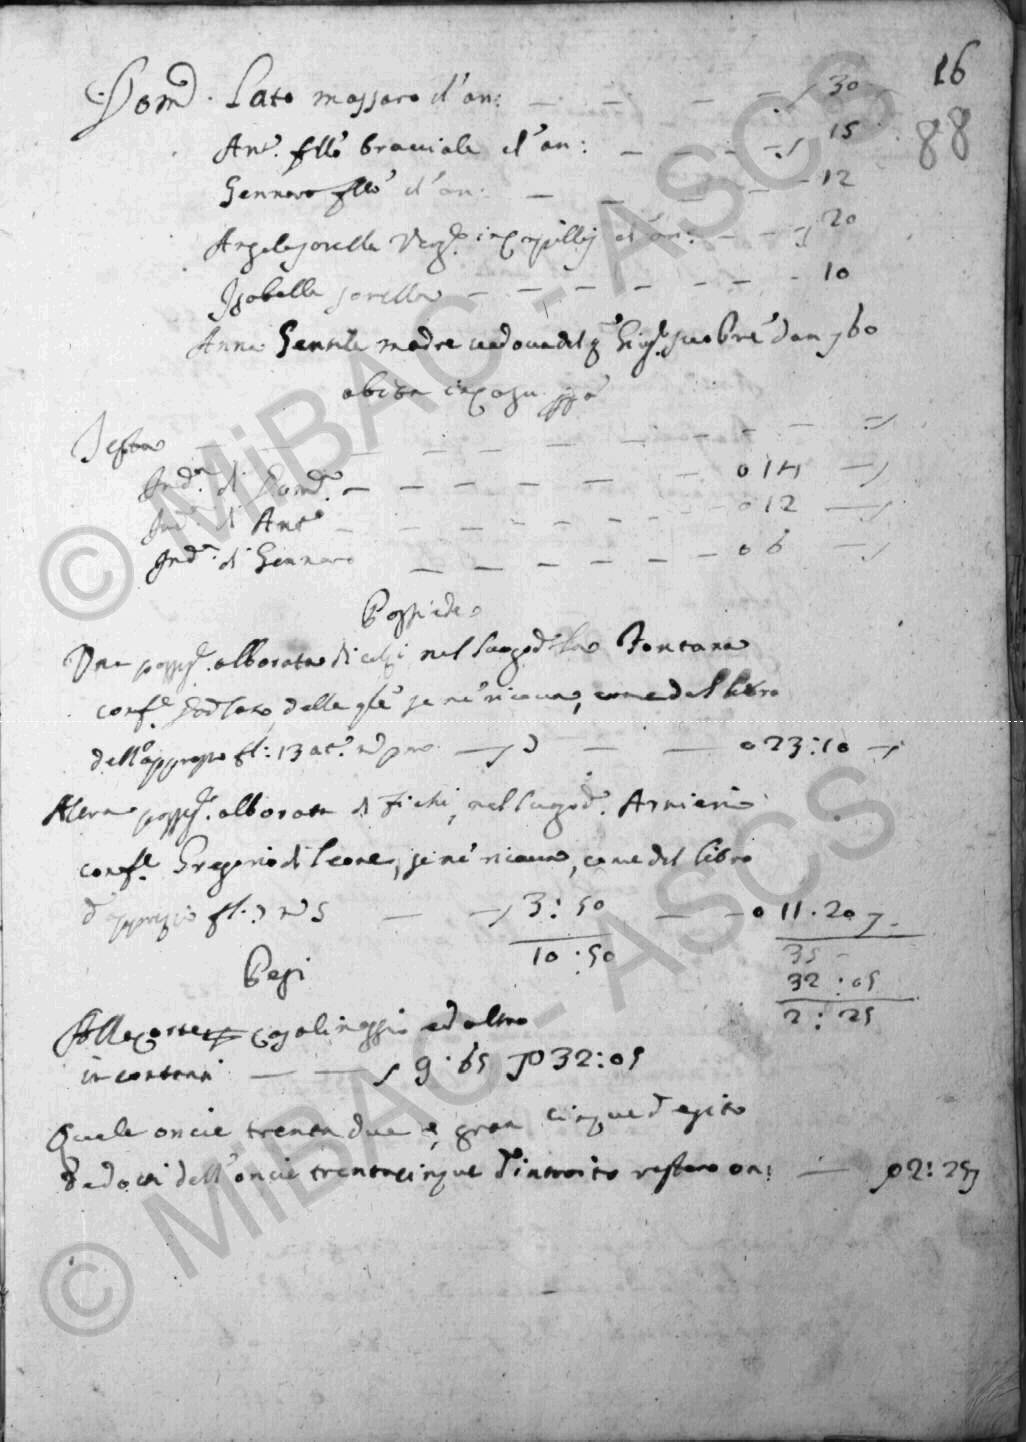 16
88
Dom.co Lato massaro d'an: — — — — 30
Ant.o fllo bracciale d'an: — — — 15
Gennaro fllo d'an: — — — 12
Angela sorella Verg.e in capillis d'an: — — 20
Isabella sorella — — — — — — 10
Anna Gentile madre vedova del q.m d'an 60
abita in casa
Testa — — — — — —
Ind.a di Dom.co — — — — — — 0 14
Ind.a di Ant.o — — — — — 0 12
Ind.a di Gennaro — — — — — 0 6
Possiede
Una possess.e alborata di celsi nel luogo d.o la Fontana
conf.e Lato, delle q.le se ne ricava, come dal libro
dell'apprezzo fl: 13 — — — 0 23:10
Altra possess.e alborata di Fichi, nel luogo d.o Arnieri
conf.e Gregorio di Leone, se ne ricava, come dal libro
d'apprezzo fl. n 5 — — 3:50 — — 0 11.20
10:50
35 -
32:05
2:25
Pesi
Alla corte casalinaggio ed altro
in contanti — — — 9:65 32:05
Quale oncie trenta due e grana cinque d'esito
dedotti dall'oncie trentacinque d'introito restano on: — 2:25